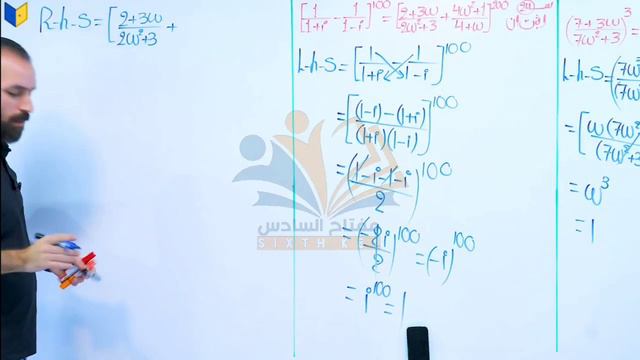 R-h-S = [(2+3ω)/(2ω²+3) +
[1/(1+i) - 1/(1-i)]^100 = [(2+3ω)/(2ω²+3) + (4ω²+1)/(4+ω)]^200
L-h-S = [1/(1+i) - 1/(1-i)]^100
= [((1-i)-(1+i))/((1+i)(1-i))]^100
= ((1-i-1-i)/2)^100
= (-2i/2)^100 = (-i)^100
= i^100 = 1
((7+3ω)/(7ω²+3))^3 =
L-h-S = (7ω²
(7ω
= [ω(7ω²
(7ω²+3
= ω³
= 1
مفتاح السادس
SIXTH KEY